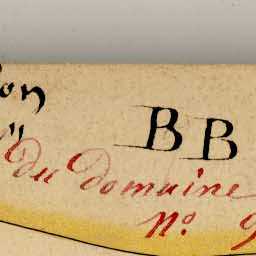 on
" BB
du Domaine
N.º 9